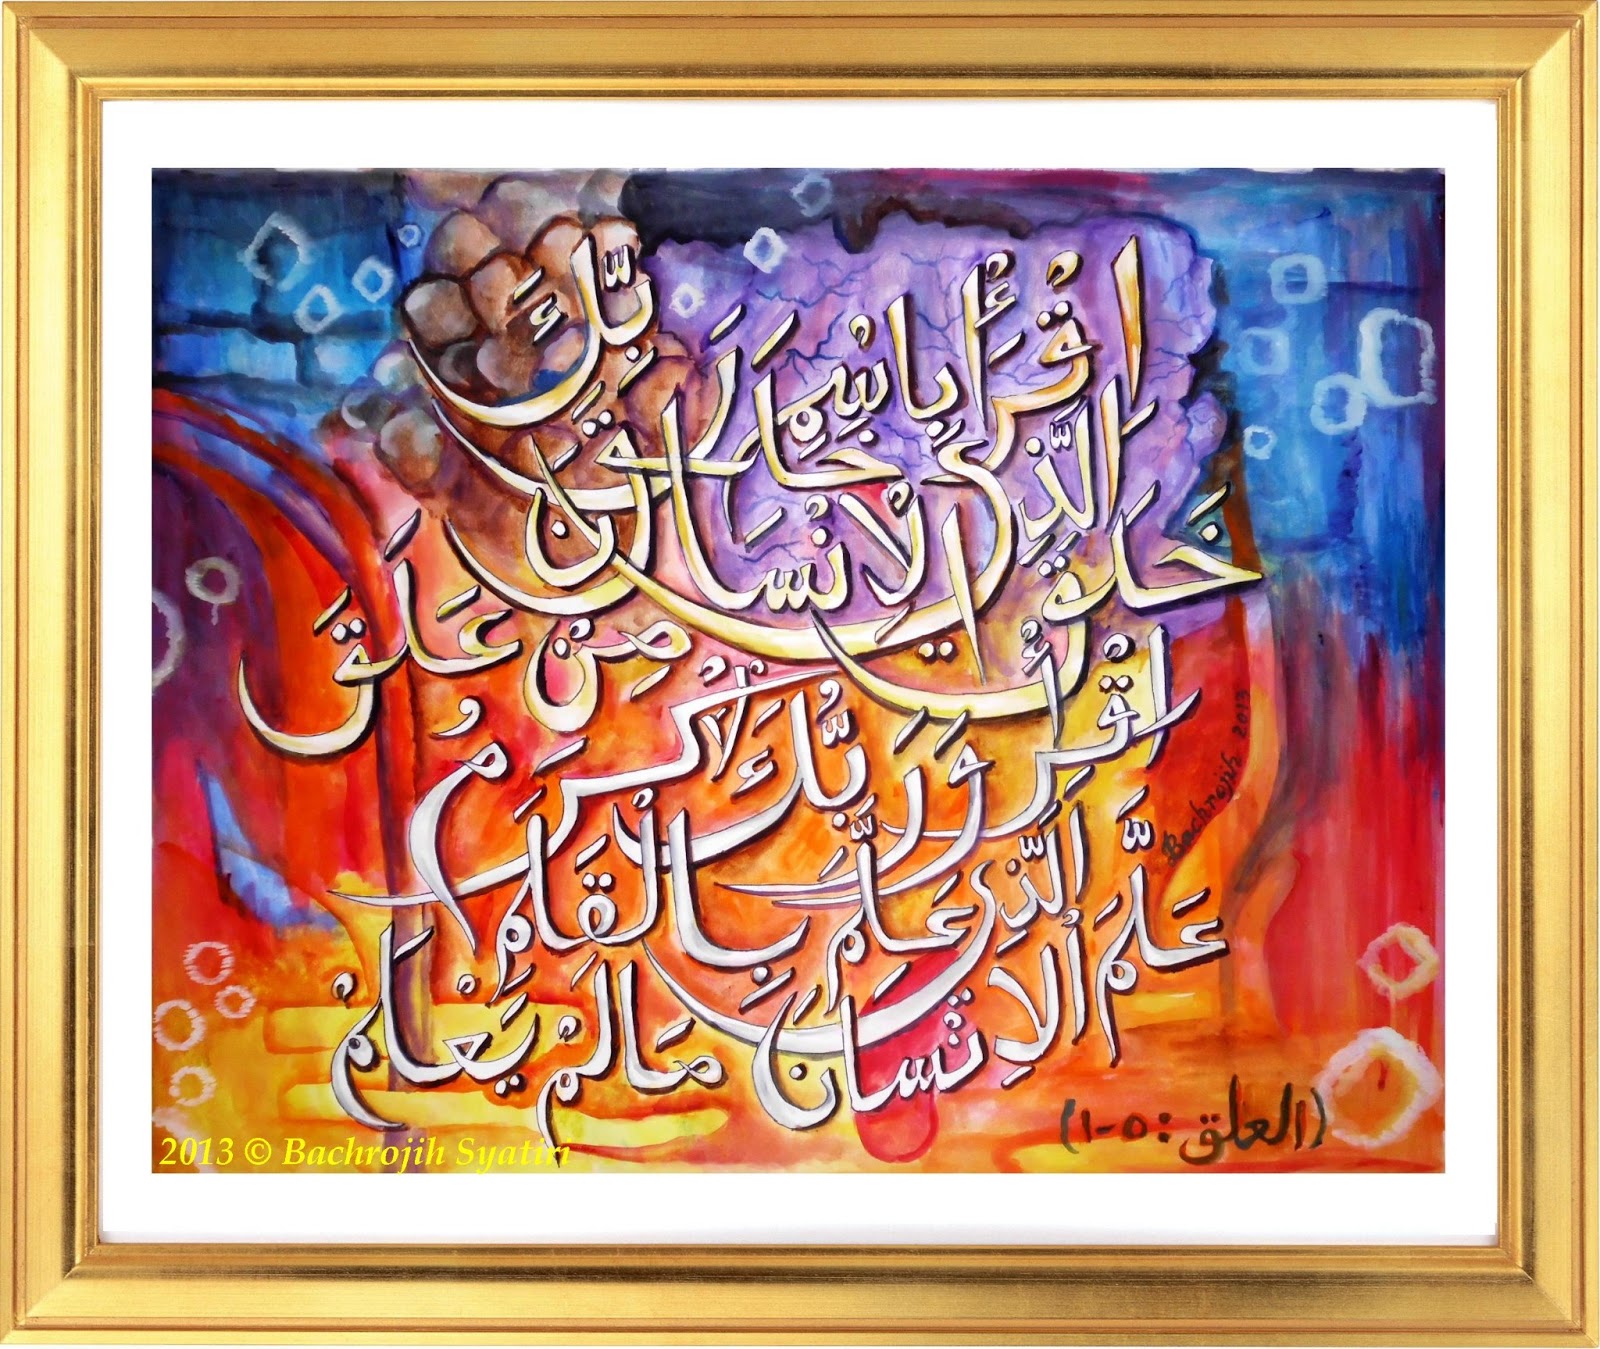 اِقْرَأْ بِاسْمِ رَبِّكَ
الَّذِيْ خَلَقَ
خَلَقَ الْاِنْسَانَ مِنْ عَلَقٍ
اِقْرَأْ وَرَبُّكَ الْاَكْرَمُ
الَّذِيْ عَلَّمَ بِالْقَلَمِ
عَلَّمَ الْاِنْسَانَ مَالَمْ يَعْلَمْ
(العلق: ٥-١)
Bachrojih 2013
2013 © Bachrojih Syatiri